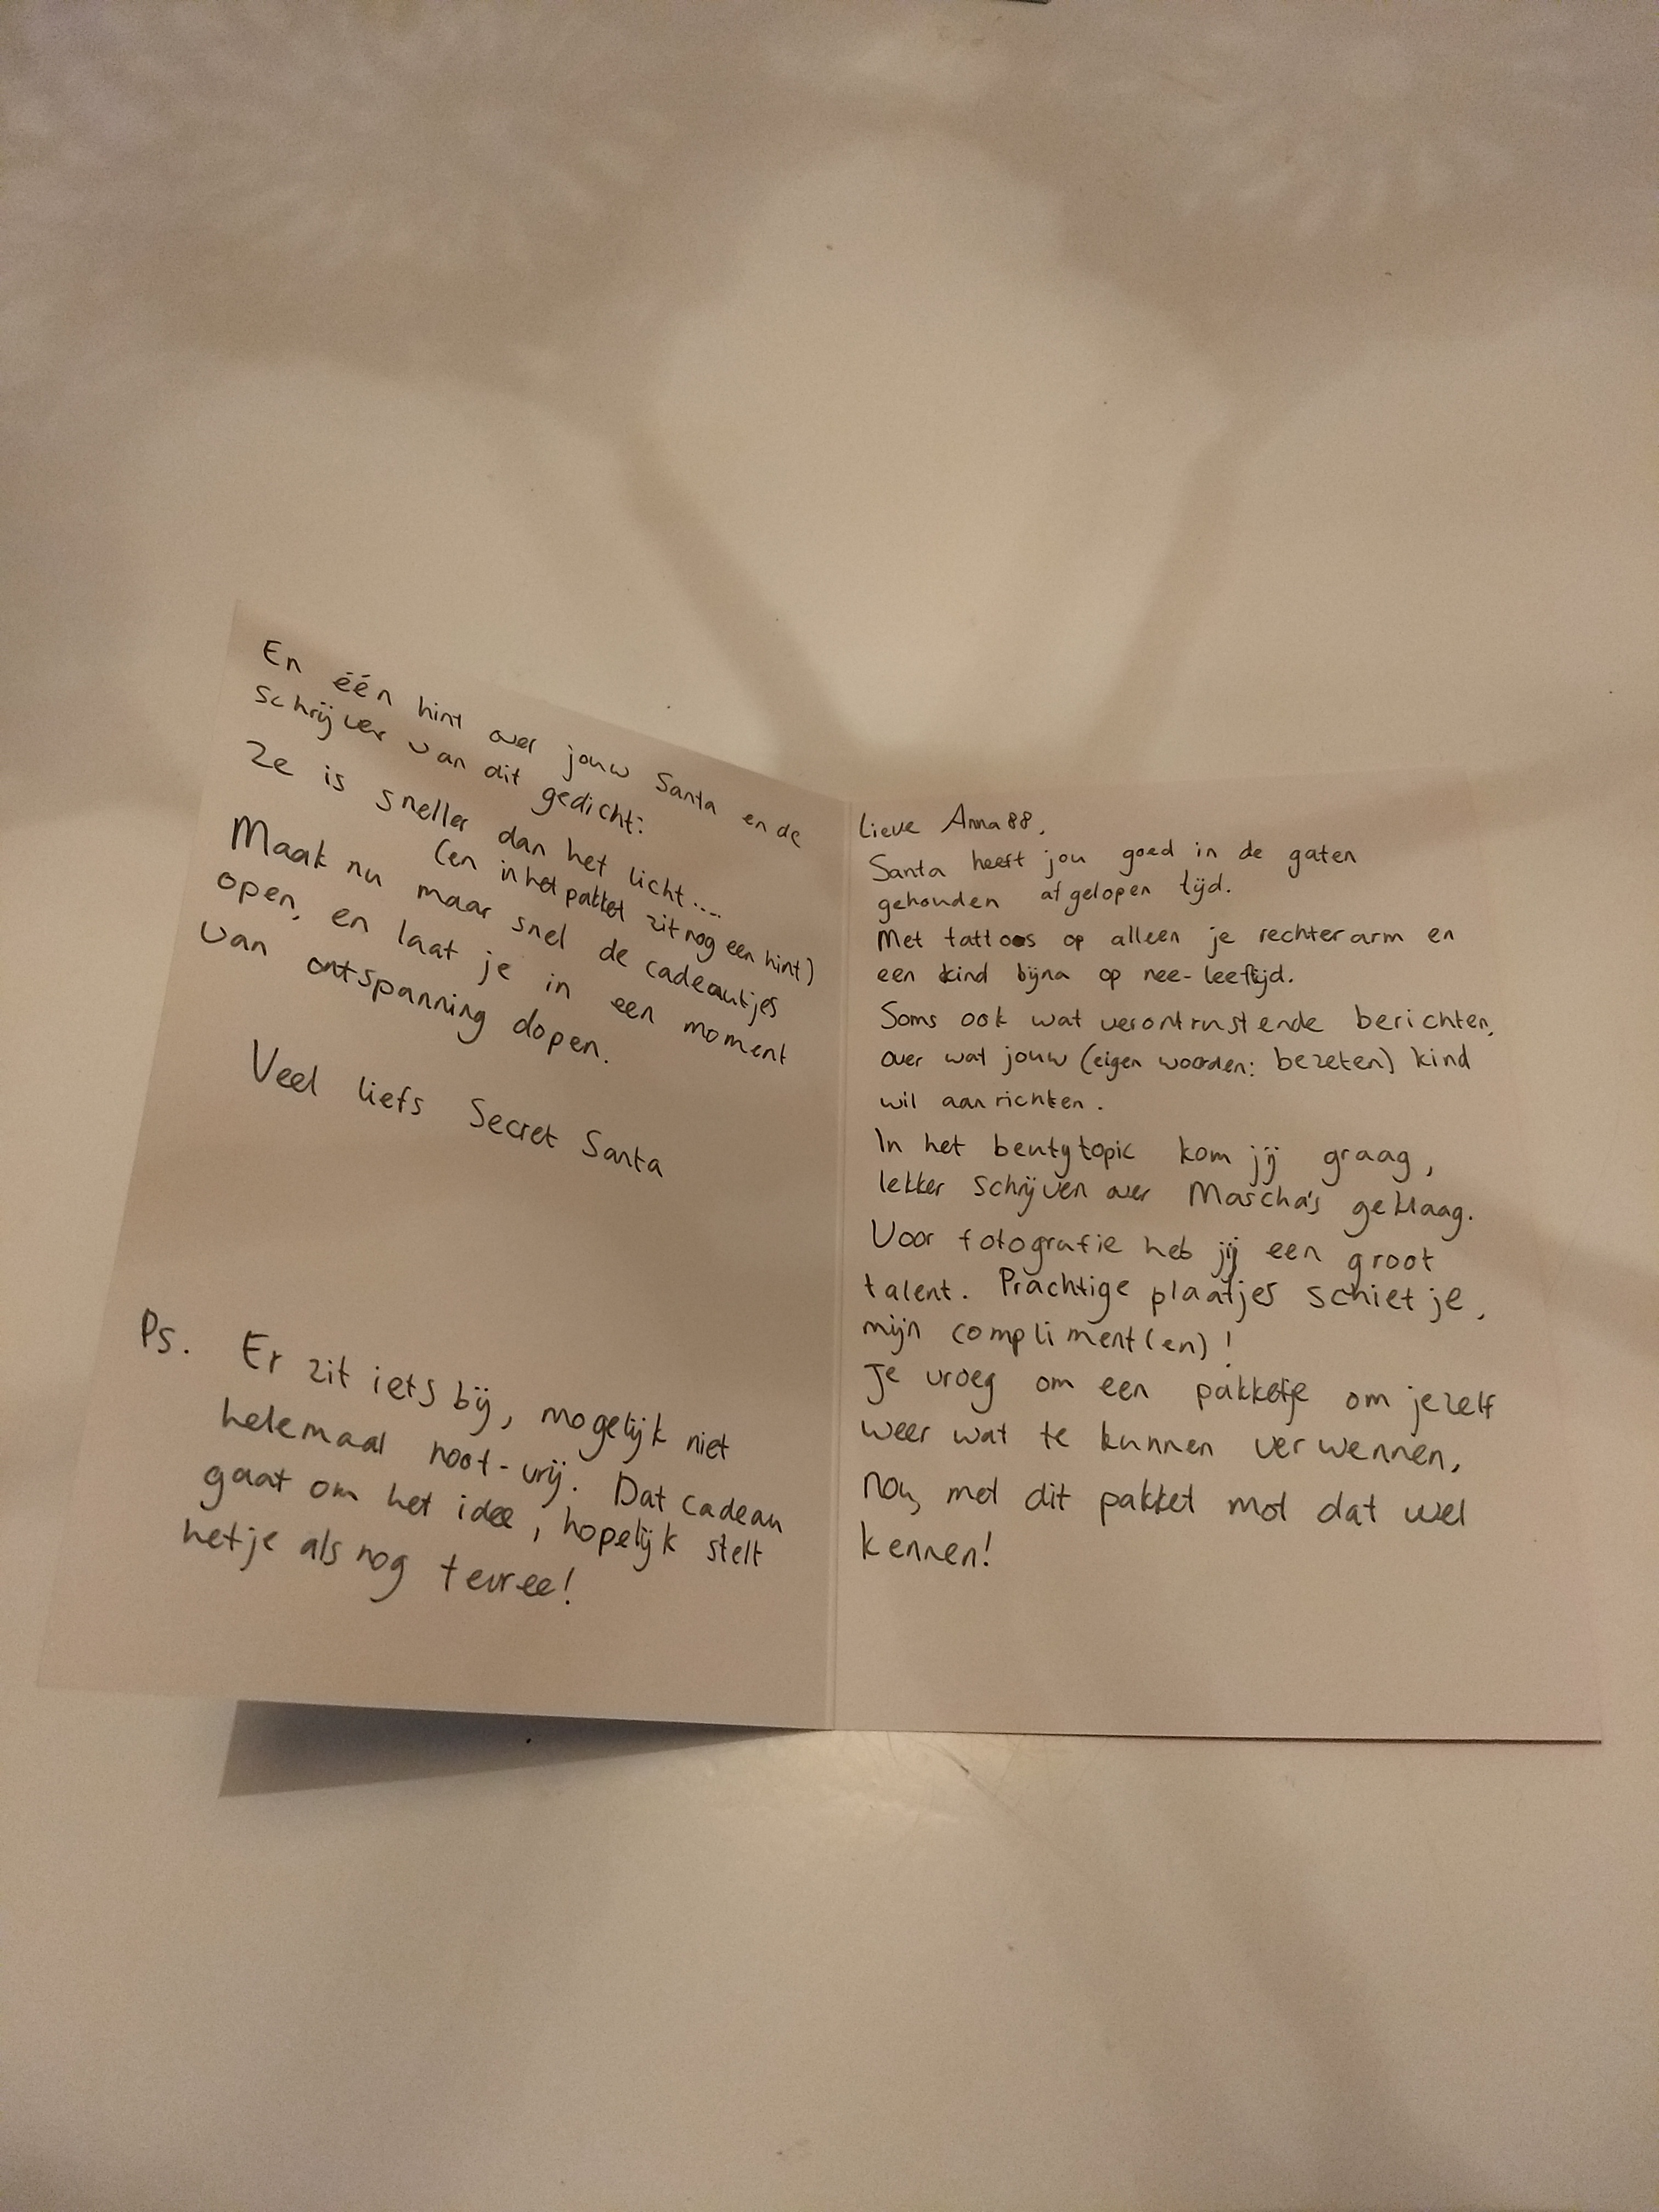 Lieve Anna88,
Santa heeft jou goed in de gaten
gehouden afgelopen tijd.
Met tattoos op alleen je rechterarm en
een kind bijna op nee-leeftijd.
Soms ook wat verontrustende berichten,
over wat jouw (eigen woorden: bezeten) kind
wil aanrichten.
In het beutytopic kom jij graag,
lekker schrijven over Mascha's geklaag.
Voor fotografie heb jij een groot
talent. Prachtige plaatjes schiet je,
mijn compliment(en)!
Je vroeg om een pakketje om jezelf
weer wat te kunnen verwennen,
nou, met dit pakket mot dat wel
kennen!
En één hint over jouw Santa en de
schrijver van dit gedicht:
Ze is sneller dan het licht....
(en in het pakket zit nog een hint)
Maak nu maar snel de cadeautjes
open, en laat je in een moment
van ontspanning dopen.
Veel liefs Secret Santa
Ps. Er zit iets bij, mogelijk niet
helemaal noot-vrij. Dat cadeau
gaat om het idee, hopelijk stelt
het je als nog tevree!